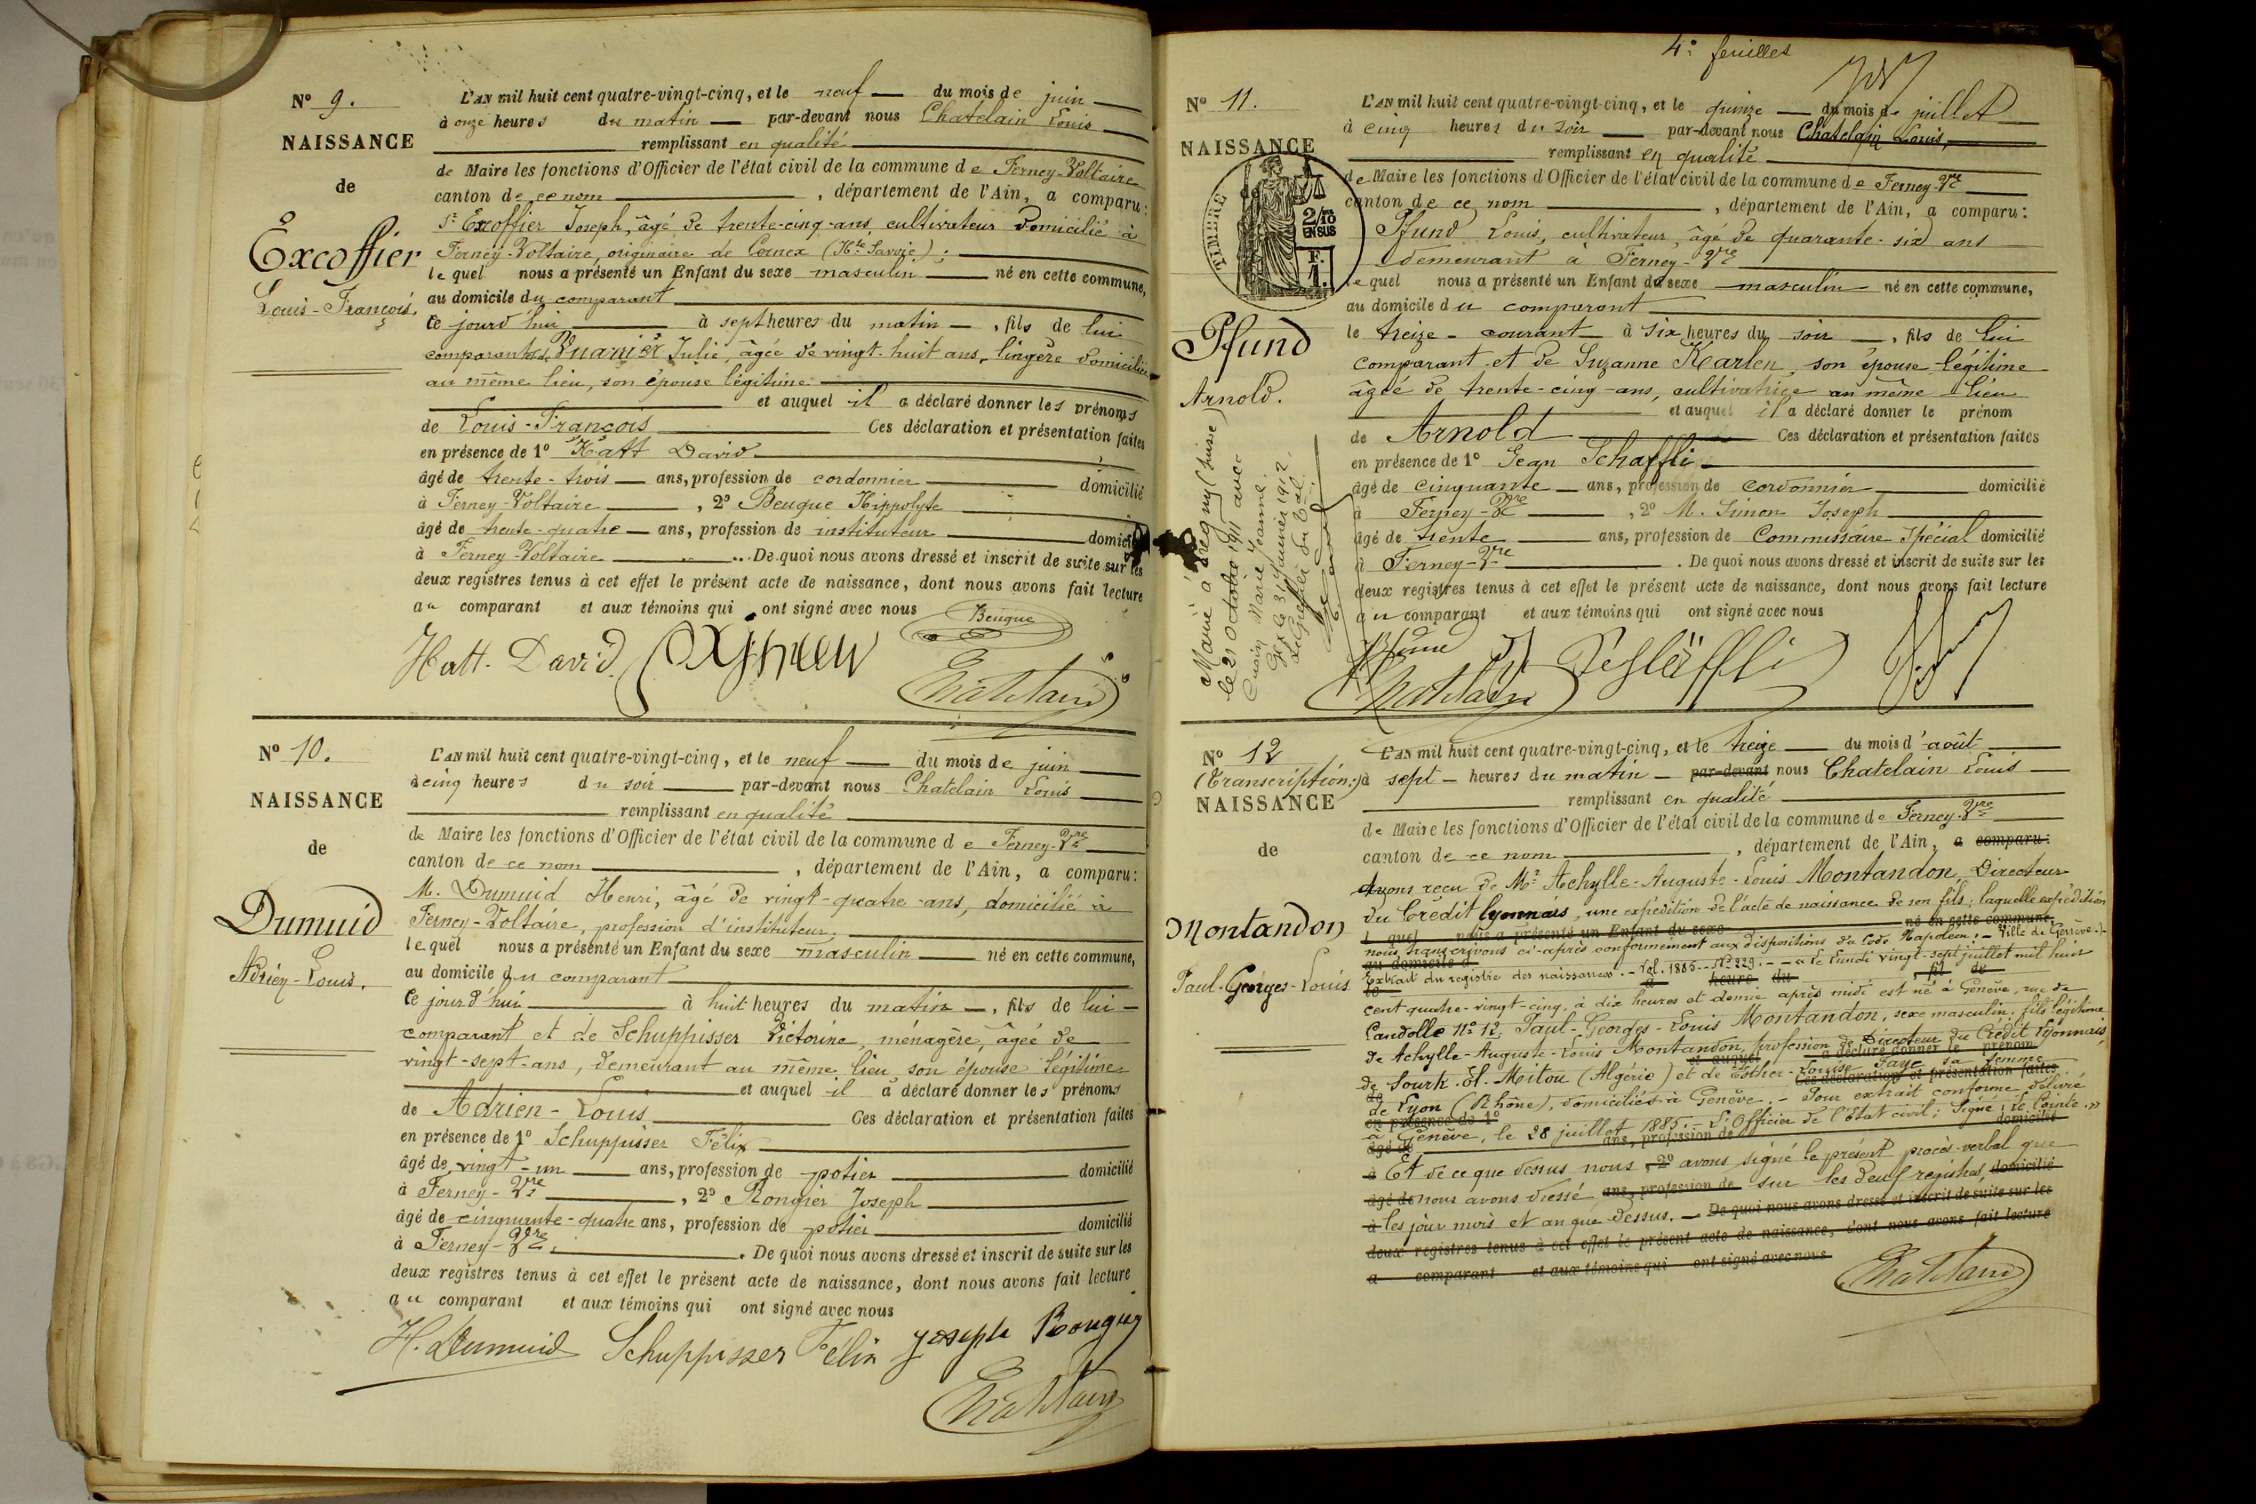 N° 9.
NAISSANCE
de
Excoffier
Louis-François.
L'AN mil huit cent quatre-vingt-cinq, et le neuf du mois de juin
à onze heures du matin par-devant nous Chatelain Louis
remplissant en qualité
de Maire les fonctions d'Officier de l'état civil de la commune de Ferney-Voltaire
canton de ce nom, département de l'Ain, a comparu:
Sr Excoffier Joseph, âgé de trente-cinq-ans, cultivateur domicilié à
Ferney-Voltaire, originaire de Cornex (Hte Savoie);
lequel nous a présenté un Enfant du sexe masculin né en cette commune,
au domicile du comparant
ce jourd'hui à sept heures du matin, fils de lui
comparant et de Julie, âgée de vingt-huit ans, lingère domiciliée
au même lieu, son épouse légitime
et auquel il a déclaré donner les prénoms
de Louis-François Ces déclaration et présentation faites
en présence de 1° Hatt David
âgé de trente-trois ans, profession de cordonnier domicilié
à Ferney-Voltaire, 2° Beugue Hippolyte
âgé de trente-quatre ans, profession de instituteur domicilié
à Ferney-Voltaire. De quoi nous avons dressé et inscrit de suite sur les
deux registres tenus à cet effet le présent acte de naissance, dont nous avons fait lecture
au comparant et aux témoins qui ont signé avec nous
Beugue
Hatt. David.
Chatelain
N° 10.
NAISSANCE
de
Dumuid
Adrien-Louis.
L'AN mil huit cent quatre-vingt-cinq, et le neuf du mois de juin
à cinq heures du soir par-devant nous Chatelain Louis
remplissant en qualité
de Maire les fonctions d'Officier de l'état civil de la commune de Ferney-Vre
canton de ce nom, département de l'Ain, a comparu:
M. Dumuid Henri, âgé de vingt-quatre-ans, domicilié à
Ferney-Voltaire, profession d'instituteur;
lequel nous a présenté un Enfant du sexe masculin né en cette commune,
au domicile du comparant
ce jourd'hui à huit heures du matin, fils de lui
comparant et de Schuppisser Victorine, ménagère, âgée de
vingt-sept-ans, demeurant au même lieu, son épouse légitime
et auquel il a déclaré donner les prénoms
de Adrien-Louis Ces déclaration et présentation faites
en présence de 1° Schuppisser Félix
âgé de vingt-un ans, profession de potier domicilié
à Ferney-Vre, 2° Rongier Joseph
âgé de cinquante-quatre ans, profession de potier domicilié
à Ferney-Vre. De quoi nous avons dressé et inscrit de suite sur les
deux registres tenus à cet effet le présent acte de naissance, dont nous avons fait lecture
au comparant et aux témoins qui ont signé avec nous
H. Dumuid Schuppisser Félix Joseph Rongier
Chatelain
4e feuilles
N° 11.
NAISSANCE
TIMBRE
2/10 EN SUS
F. 1.
Pfund
Arnold.
Marié à Pregny (Suisse)
le 21 octobre 1911 avec
Marie Jeanne.
Gex le 31 janvier 1912.
Le Greffier du Tal.
L'AN mil huit cent quatre-vingt-cinq, et le quinze du mois de juillet
à cinq heures du soir par-devant nous Chatelain Louis,
remplissant en qualité
de Maire les fonctions d'Officier de l'état civil de la commune de Ferney-Vre
canton de ce nom, département de l'Ain, a comparu:
Pfund Louis, cultivateur, âgé de quarante-six ans
demeurant à Ferney-Vre
lequel nous a présenté un Enfant du sexe masculin né en cette commune,
au domicile du comparant
le treize courant à six heures du soir, fils de lui
comparant et de Suzanne Karlen, son épouse légitime
âgée de trente-cinq-ans, cultivatrice au même lieu
et auquel il a déclaré donner le prénom
de Arnold Ces déclaration et présentation faites
en présence de 1° Jean Schaffli
âgé de cinquante ans, profession de cordonnier domicilié
à Ferney-Vre, 2° M. Simon Joseph
âgé de trente ans, profession de Commissaire Spécial domicilié
à Ferney-Vre. De quoi nous avons dressé et inscrit de suite sur les
deux registres tenus à cet effet le présent acte de naissance, dont nous avons fait lecture
au comparant et aux témoins qui ont signé avec nous
Pfund
Chatelain
N° 12
(Transcription:)
NAISSANCE
de
Montandon
Paul-Georges-Louis
L'AN mil huit cent quatre-vingt-cinq, et le treize du mois d'août
à sept heures du matin par-devant nous Chatelain Louis
remplissant en qualité
de Maire les fonctions d'Officier de l'état civil de la commune de Ferney-Vre
canton de ce nom, département de l'Ain, a comparu:
avons reçu de Mr Achylle-Auguste-Louis Montandon, Directeur
du Crédit lyonnais, une expédition de l'acte de naissance de son fils; laquelle expédition
l quel nous a présenté un Enfant du sexe né en cette commune,
nous transcrivons ci-après conformément aux dispositions du Code Napoléon: - Ville de Genève.
au domicile d
Extrait du registre des naissances. - Vol. 1885. - N° 229. - le lundi vingt-sept juillet mil huit
le à heure du, fil de
cent quatre-vingt-cinq, à dix heures et demie après midi est né à Genève, rue de
Candolle n° 12, Paul-Georges-Louis Montandon, sexe masculin, fils légitime
de Achylle-Auguste-Louis Montandon, profession de Directeur du Crédit Lyonnais,
et auquel a déclaré donner le prénom
de Sourk-El-Mitou (Algérie) et de Esther-Louise Faye sa femme
de Ces déclaration et présentation faites
de Lyon (Rhône), domiciliés à Genève. - Pour extrait conforme délivré
en présence de 1°
à Genève, le 28 juillet 1885. - L'Officier de l'état civil: Signé: Le Cointe."
âgé de ans, profession de domicilié
à Et de ce que dessus nous, 2° avons signé le présent procès-verbal que
âgé de nous avons dressé ans, profession de sur les deux registres, domicilié
à les jour mois et an que dessus. - De quoi nous avons dressé et inscrit de suite sur les
deux registres tenus à cet effet le présent acte de naissance, dont nous avons fait lecture
a comparant et aux témoins qui ont signé avec nous
Chatelain